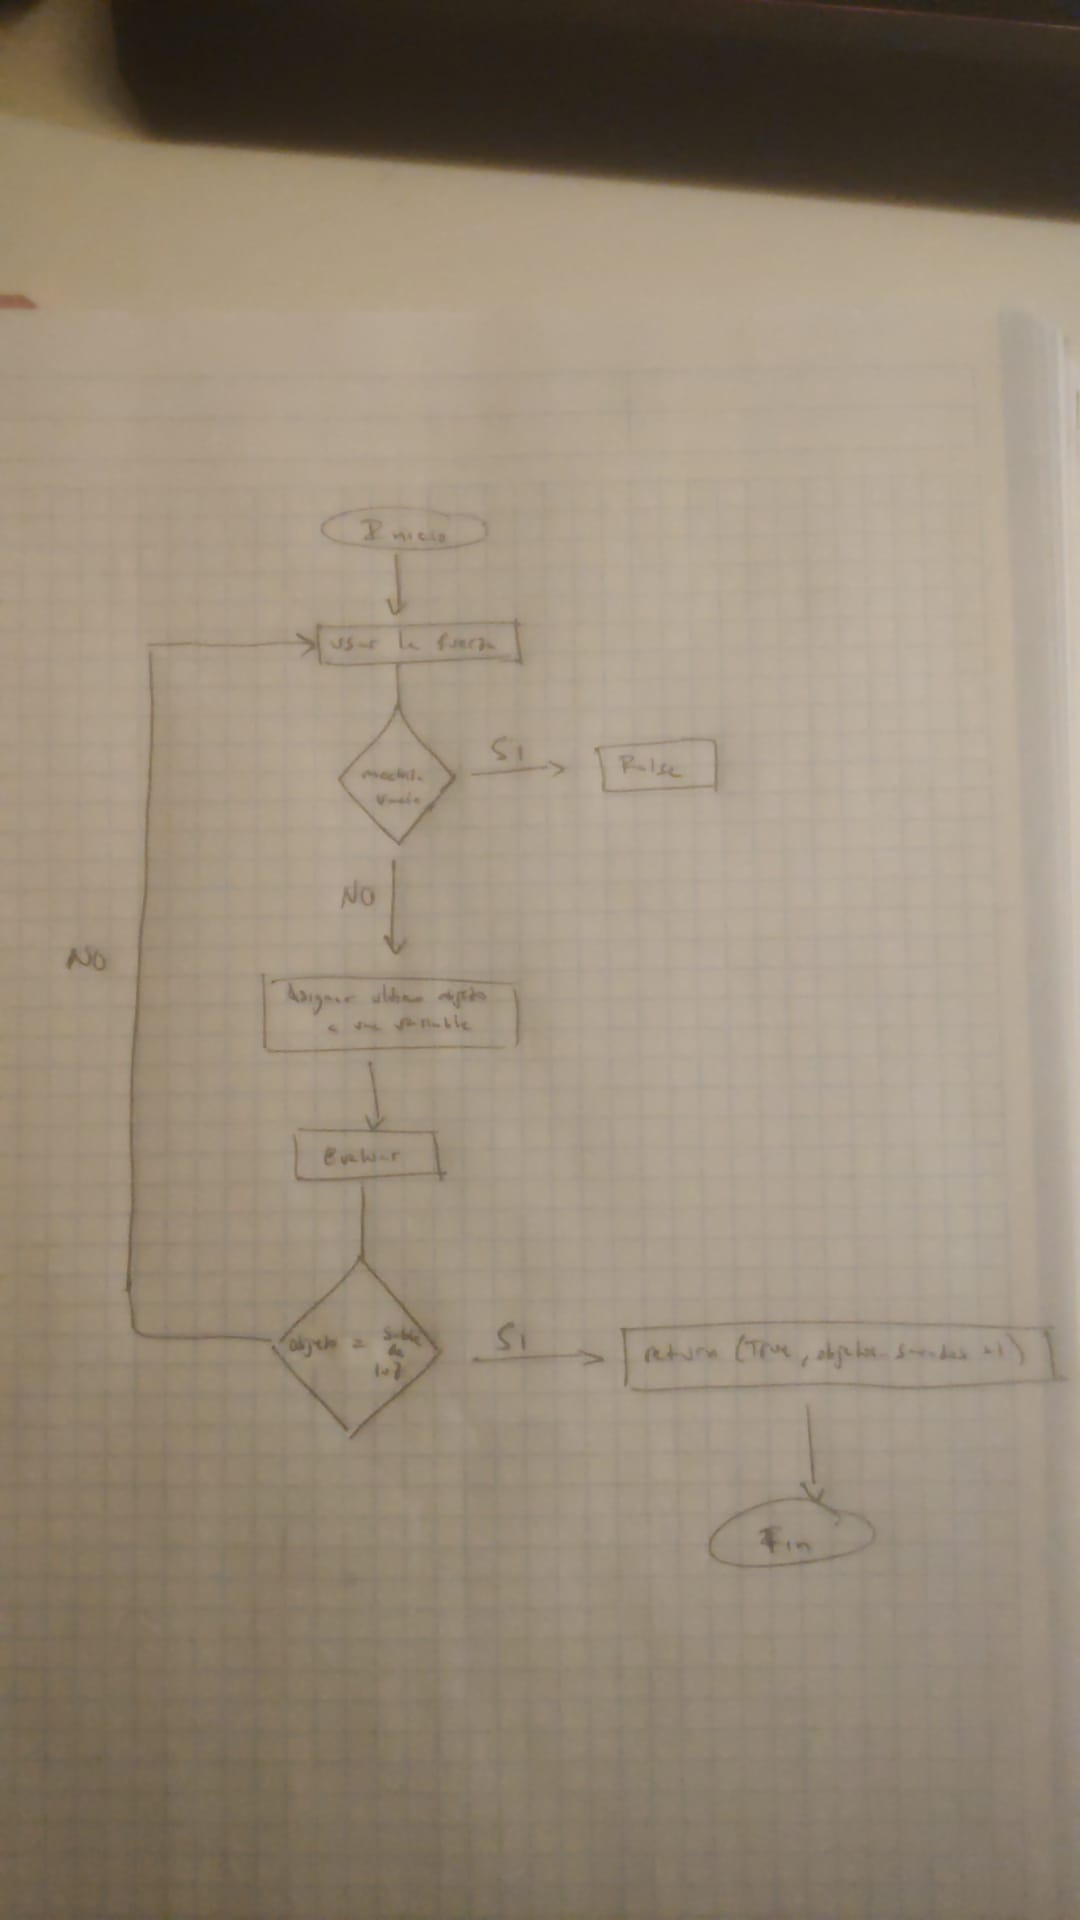 Inicio
usar la fuerza
mochila
vacía
SI
False
NO
Asignar ultimo objeto
a una variable
NO
Evaluar
objeto = sable
de
luz
SI
return (True, objetos_sacados +1)
Fin